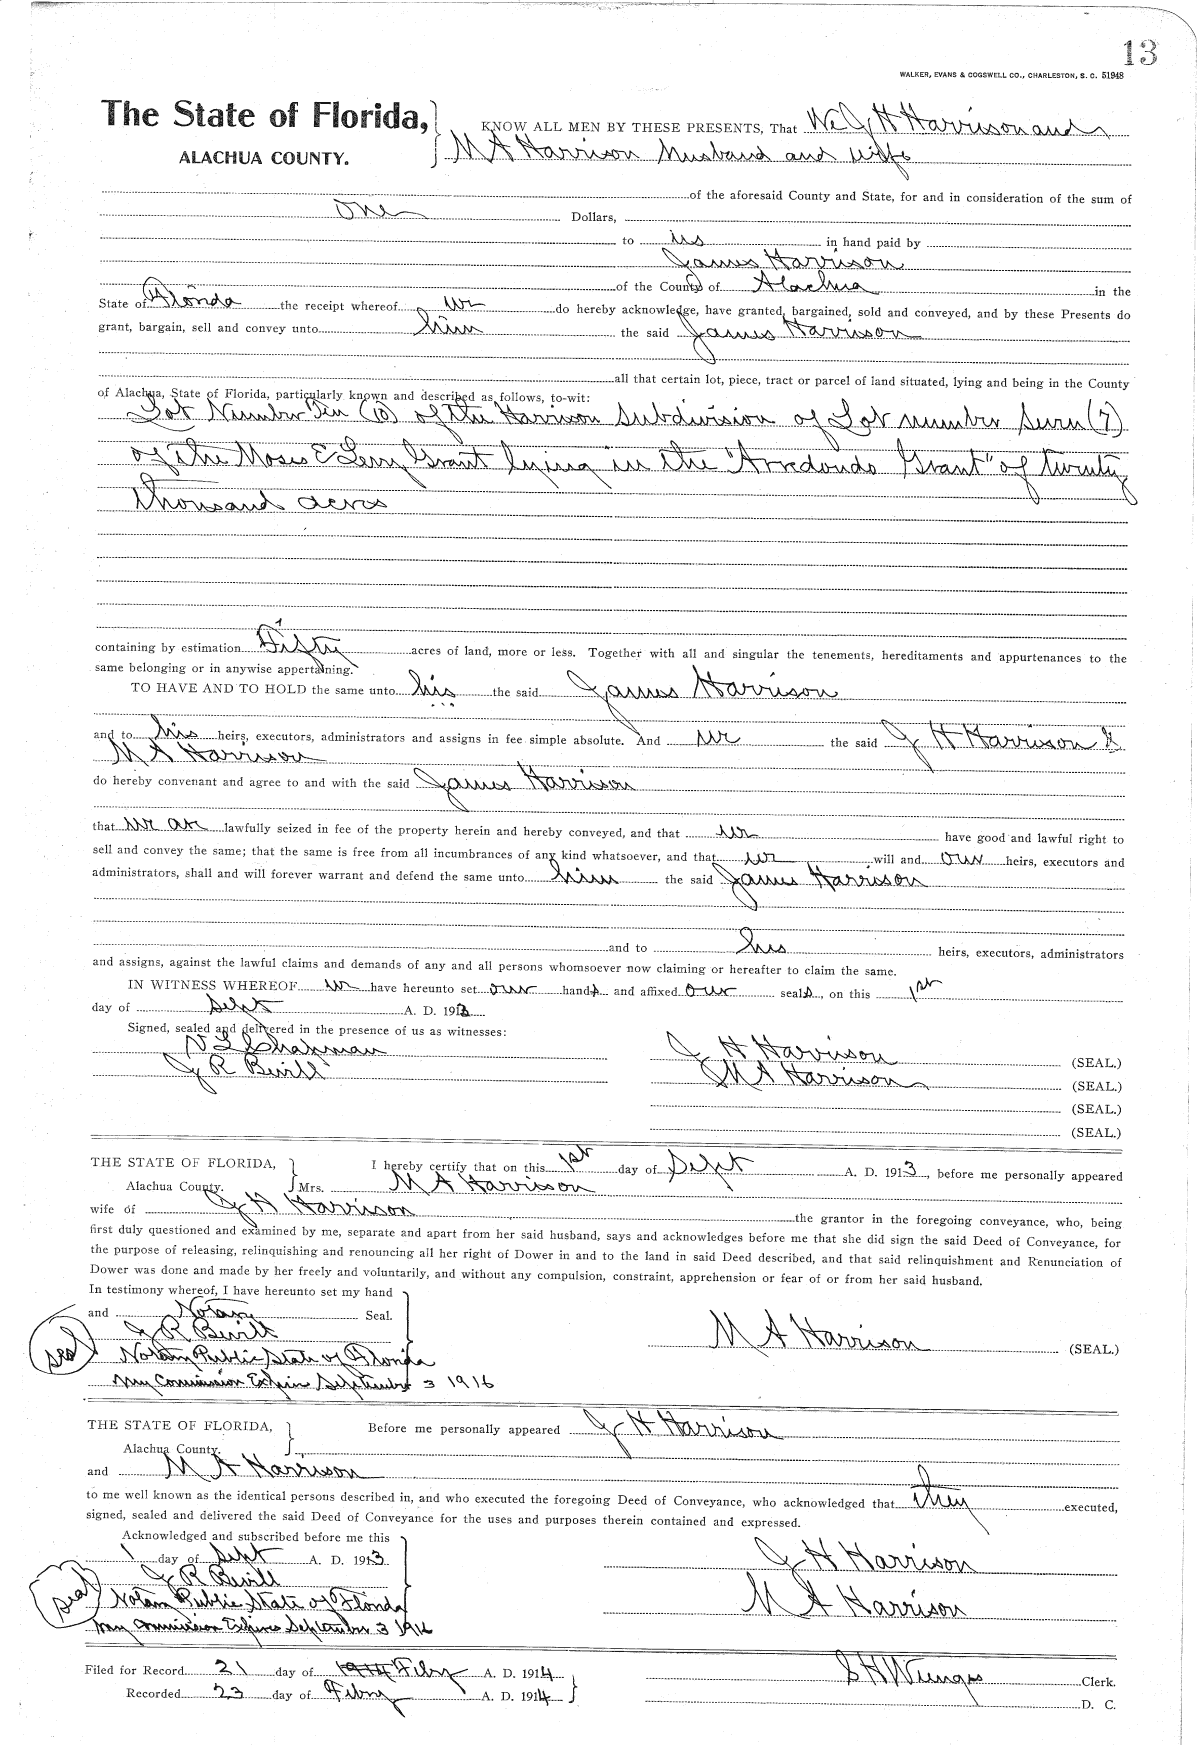 13
WALKER, EVANS & COGSWELL CO., CHARLESTON, S. C. 51948
The State of Florida,
ALACHUA COUNTY.
KNOW ALL MEN BY THESE PRESENTS, That We J H Harrison and
M A Harrison husband and wife
of the aforesaid County and State, for and in consideration of the sum of
One Dollars,
to us in hand paid by
James Harrison
of the County of Alachua in the
State of Florida the receipt whereof we do hereby acknowledge, have granted, bargained, sold and conveyed, and by these Presents do
grant, bargain, sell and convey unto him the said James Harrison
all that certain lot, piece, tract or parcel of land situated, lying and being in the County
of Alachua, State of Florida, particularly known and described as follows, to-wit:
Lot Number Ten (10) of the Harrison Subdivision of Lot number Seven (7)
of the Moses E Levy Grant lying in the "Arredondo Grant" of twenty
thousand acres
containing by estimation Fifty acres of land, more or less. Together with all and singular the tenements, hereditaments and appurtenances to the
same belonging or in anywise appertaining.
TO HAVE AND TO HOLD the same unto his the said James Harrison
and to his heirs, executors, administrators and assigns in fee simple absolute. And we the said J H Harrison &
M A Harrison
do hereby convenant and agree to and with the said James Harrison
that we are lawfully seized in fee of the property herein and hereby conveyed, and that we have good and lawful right to
sell and convey the same; that the same is free from all incumbrances of any kind whatsoever, and that we will and our heirs, executors and
administrators, shall and will forever warrant and defend the same unto him the said James Harrison
and to his heirs, executors, administrators
and assigns, against the lawful claims and demands of any and all persons whomsoever now claiming or hereafter to claim the same.
IN WITNESS WHEREOF we have hereunto set our hands and affixed our seals, on this 1st
day of Sept A. D. 1913
Signed, sealed and delivered in the presence of us as witnesses:
N L Chapman
J R Bevill
J H Harrison (SEAL.)
M A Harrison (SEAL.)
(SEAL.)
(SEAL.)
THE STATE OF FLORIDA,
Alachua County.
I hereby certify that on this 1st day of Sept A. D. 1913, before me personally appeared
Mrs. M A Harrison
wife of J H Harrison the grantor in the foregoing conveyance, who, being
first duly questioned and examined by me, separate and apart from her said husband, says and acknowledges before me that she did sign the said Deed of Conveyance, for
the purpose of releasing, relinquishing and renouncing all her right of Dower in and to the land in said Deed described, and that said relinquishment and Renunciation of
Dower was done and made by her freely and voluntarily, and without any compulsion, constraint, apprehension or fear of or from her said husband.
In testimony whereof, I have hereunto set my hand
and Notary Seal.
J R Bevill
seal
Notary Public State of Florida
My Commission Expires September 3 1916
M A Harrison (SEAL.)
THE STATE OF FLORIDA,
Alachua County.
Before me personally appeared J H Harrison
and M A Harrison
to me well known as the identical persons described in, and who executed the foregoing Deed of Conveyance, who acknowledged that they executed,
signed, sealed and delivered the said Deed of Conveyance for the uses and purposes therein contained and expressed.
Acknowledged and subscribed before me this
1 day of Sept A. D. 1913
J R Bevill
seal
Notary Public State of Florida
my commission Expires September 3 1916
J H Harrison
M A Harrison
Filed for Record 21 day of 1914 Feby A. D. 1914
Recorded 23 day of Feby A. D. 1914
S H Wienges Clerk.
D. C.